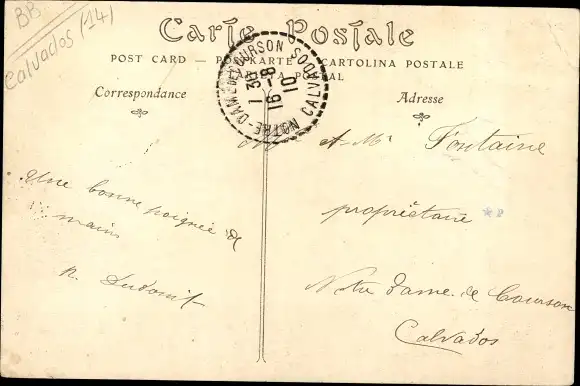 BB
Calvados (14)
Carte Postale
POST CARD — POSTKARTE — CARTOLINA POSTALE
Correspondance
Adresse
NOTRE-DAME DE COURSON CALVADOS
1 30
16 - 8
10
Une bonne poignée de
mains
A Mr Fontaine
propriétaire
Notre Dame de Courson
Calvados